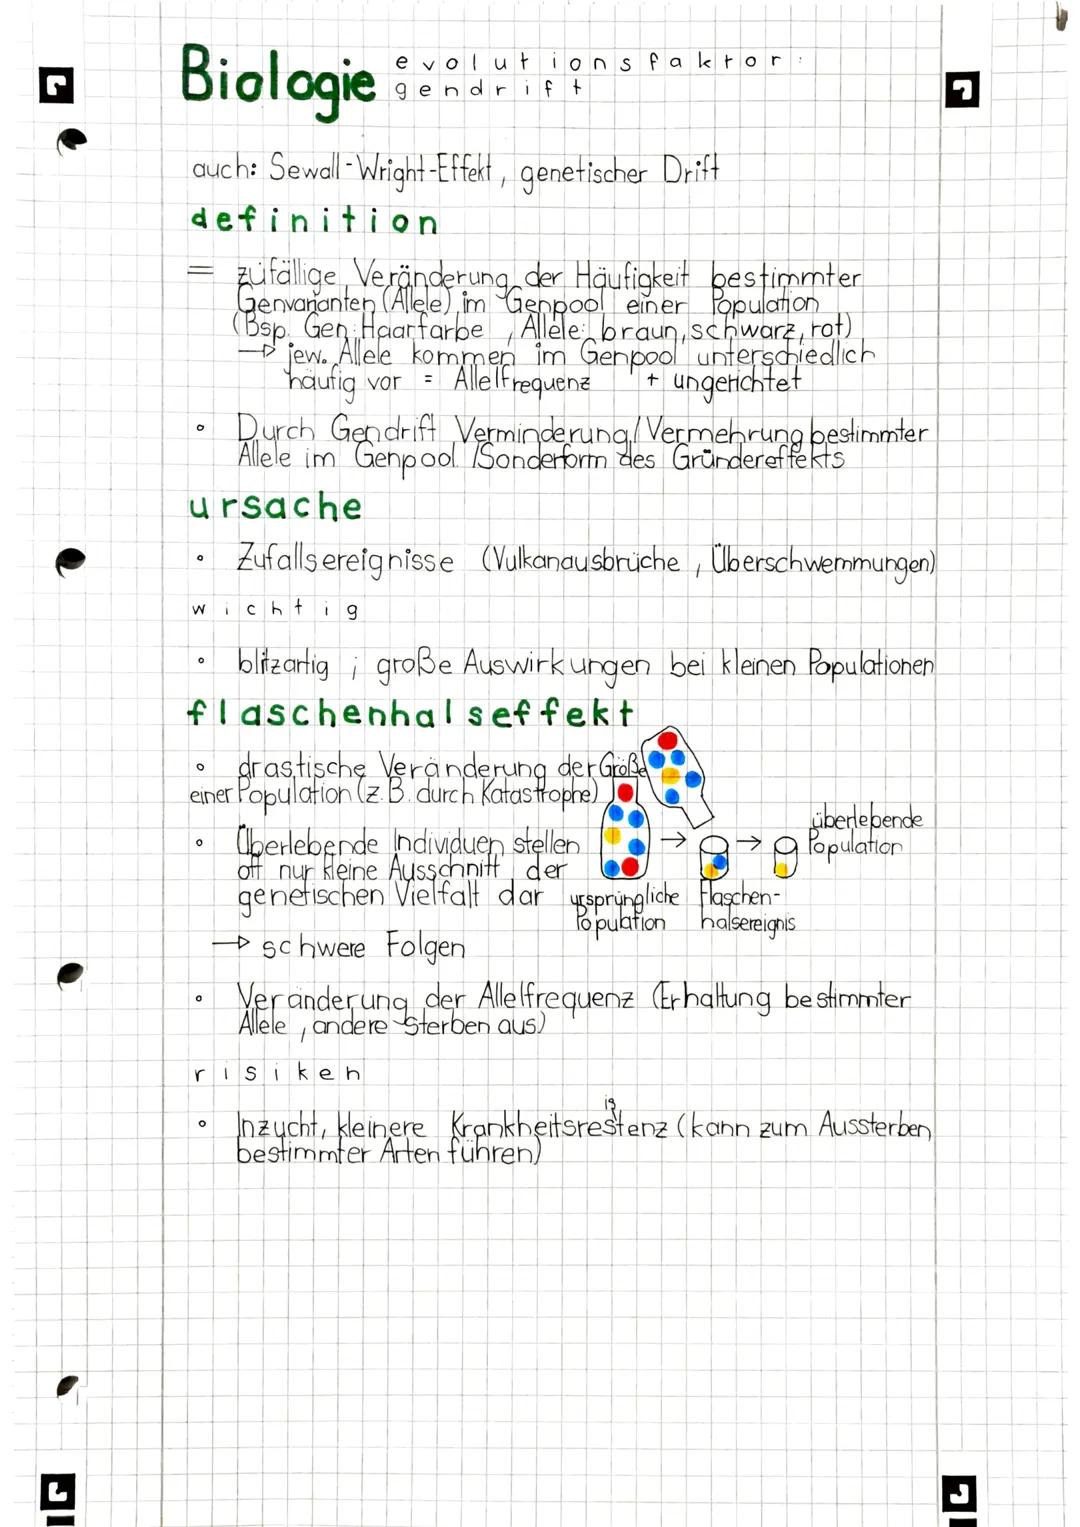 Biologie evolutionsfaktor:
gendrift
auch: Sewall-Wright-Effekt, genetischer Drift
definition
= zufällige Veränderung der Häufigkeit bestimmter
Genvarianten (Allele) im Genpool einer Population
(Bsp. Gen: Haarfarbe, Allele: braun, schwarz, rot)
→ jew. Allele kommen im Genpool unterschiedlich
häufig vor = Allelfrequenz + ungerichtet
• Durch Gendrift Verminderung/Vermehrung bestimmter
Allele im Genpool /Sonderform des Gründereffekts
ursache
• Zufallsereignisse (Vulkanausbrüche, Überschwemmungen)
wichtig
• blitzartig ; große Auswirkungen bei kleinen Populationen
flaschenhalseffekt
• drastische Veränderung der Größe
einer Population (z.B. durch Katastrophe)
• Überlebende Individuen stellen
oft nur kleine Ausschnitt der
genetischen Vielfalt dar
ursprüngliche
Population
Flaschen-
halsereignis
überlebende
Population
→ schwere Folgen
• Veränderung der Allelfrequenz (Erhaltung bestimmter
Allele, andere sterben aus)
risiken
• Inzucht, kleinere Krankheitsresistenz (kann zum Aussterben
bestimmter Arten führen)